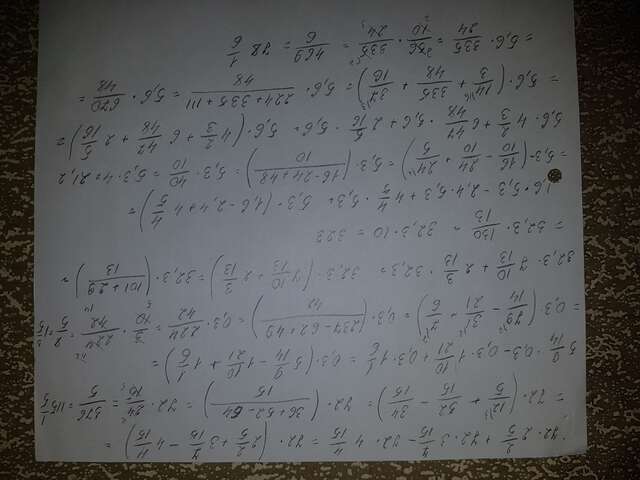 72·2 2/5 + 72·3 7/15 - 72·4 4/15 = 72·(2 2/5 + 3 7/15 - 4 4/15) =
= 72·(12/5 + 52/15 - 64/15) = 72·((36+52-64)/15) = 72·24/15 = 576/5 = 115 1/5
5 9/14·0,3 - 0,3·1 10/21 + 0,3·1 1/6 = 0,3(5 9/14 - 1 10/21 + 1 1/6) =
= 0,3(79/14 - 31/21 + 7/6) = 0,3·((237-62+49)/42) = 0,3·224/42 = 3/10·224/42 = 8/5 = 1 3/5
32,3·7 10/13 + 2 3/13·32,3 = 32,3·(7 10/13 + 2 3/13) = 32,3·((101+29)/13) =
= 32,3·130/13 = 32,3·10 = 323
1,6·5,3 - 2,4·5,3 + 4 4/5·5,3 = 5,3·(1,6-2,4+4 4/5) =
= 5,3·(16/10 - 24/10 + 24/5) = 5,3·((16-24+48)/10) = 5,3·40/10 = 5,3·4 = 21,2
5,6·4 2/3 + 6 47/48·5,6 + 2 5/16·5,6 = 5,6·(4 2/3 + 6 47/48 + 2 5/16) =
= 5,6·(14/3 + 335/48 + 37/16) = 5,6·(224+335+111)/48 = 5,6·670/48 =
= 5,6·335/24 = 56/10·335/24 = 469/6 = 78 1/6